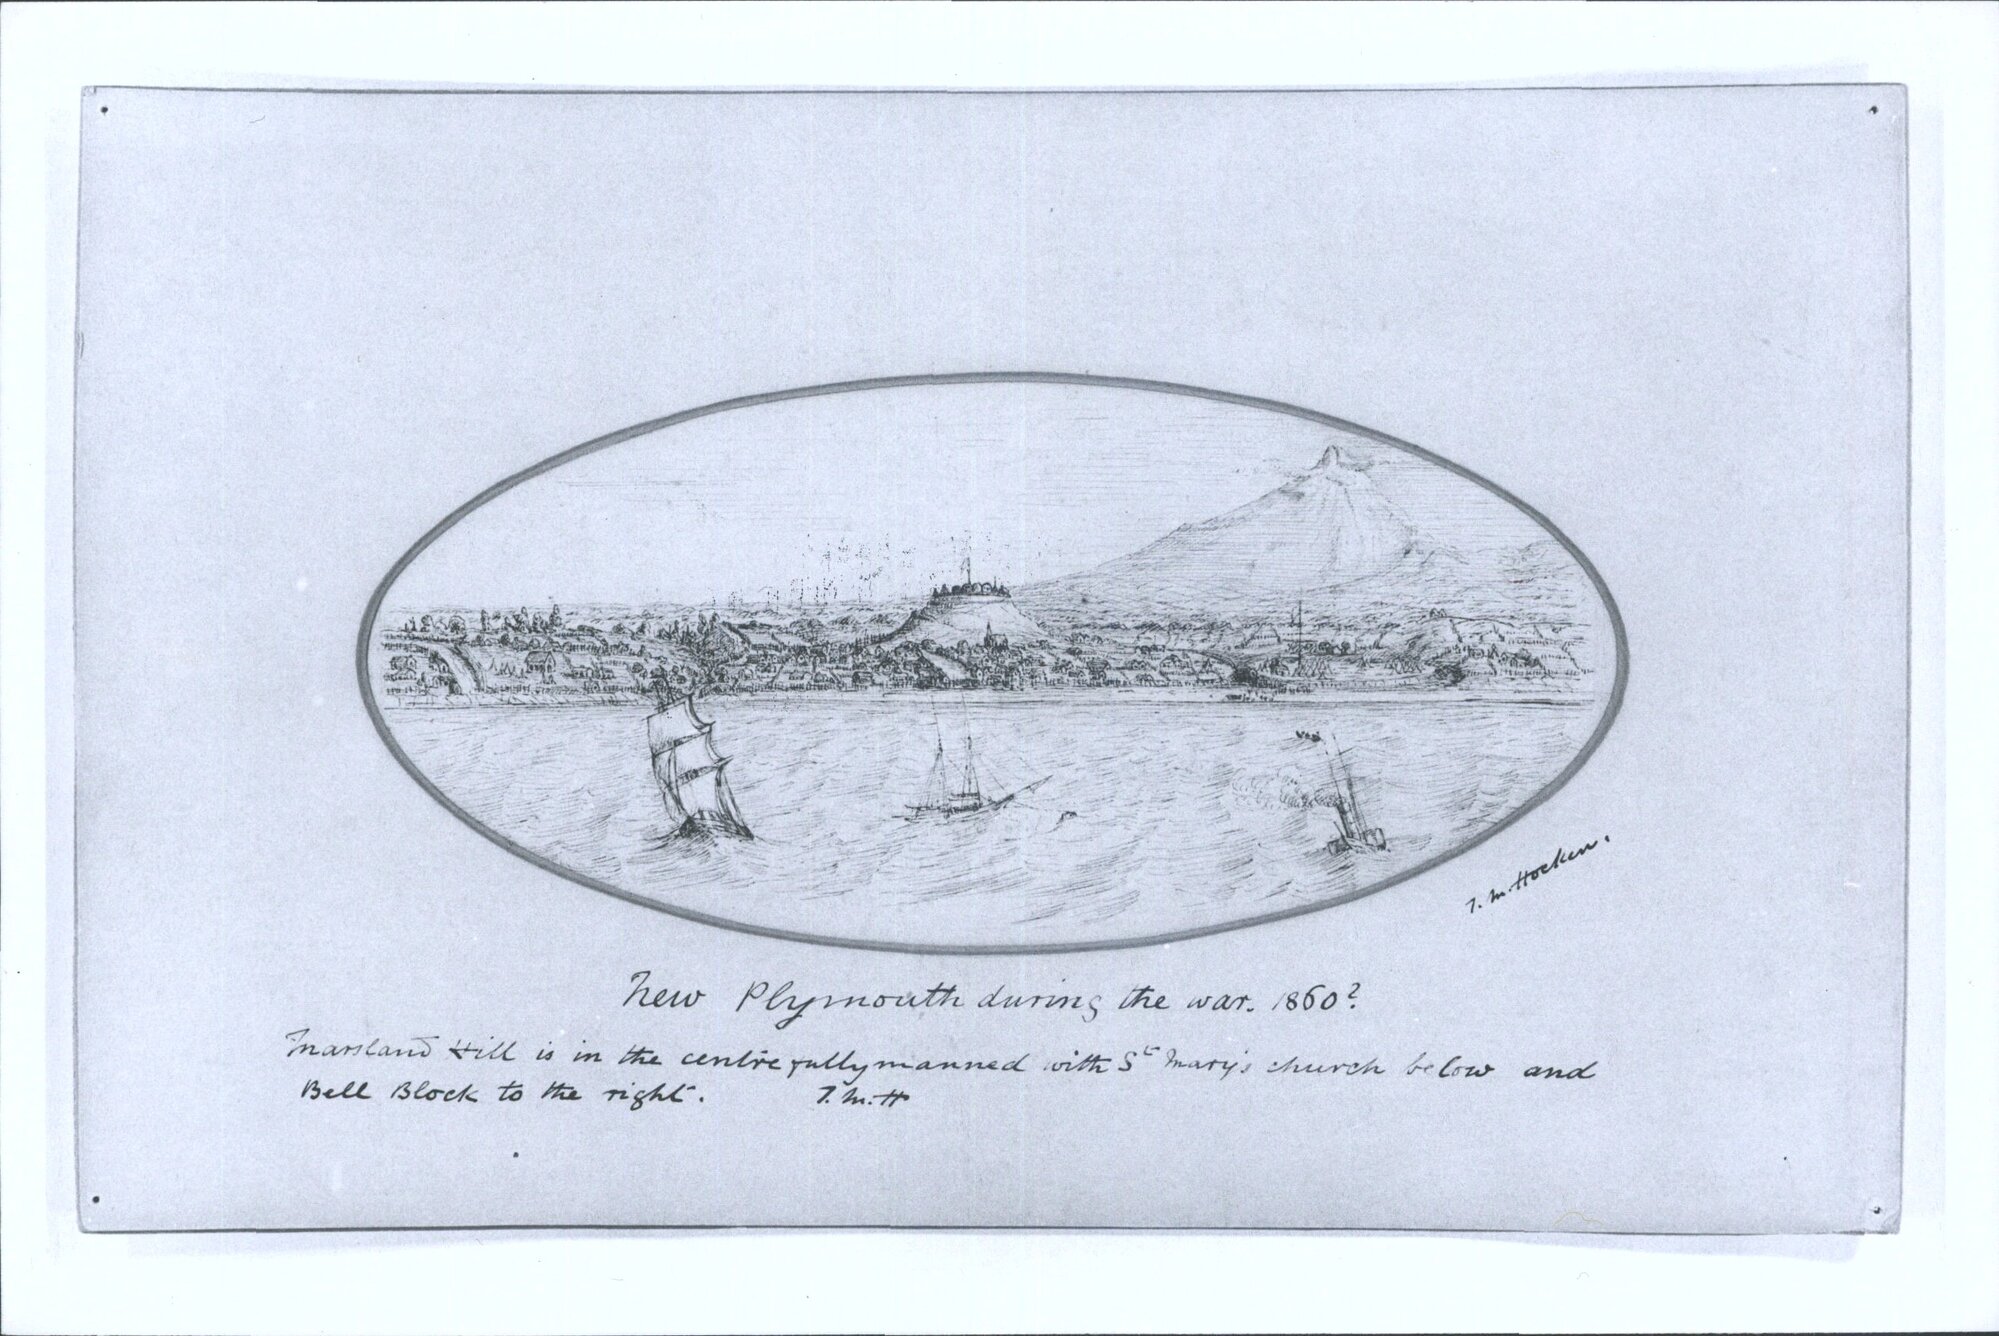 T. M. Hocken.
New Plymouth during the war. 1860?
Marsland Hill is in the centre fully manned with St Mary's church below and
Bell Block to the right. T. M. H